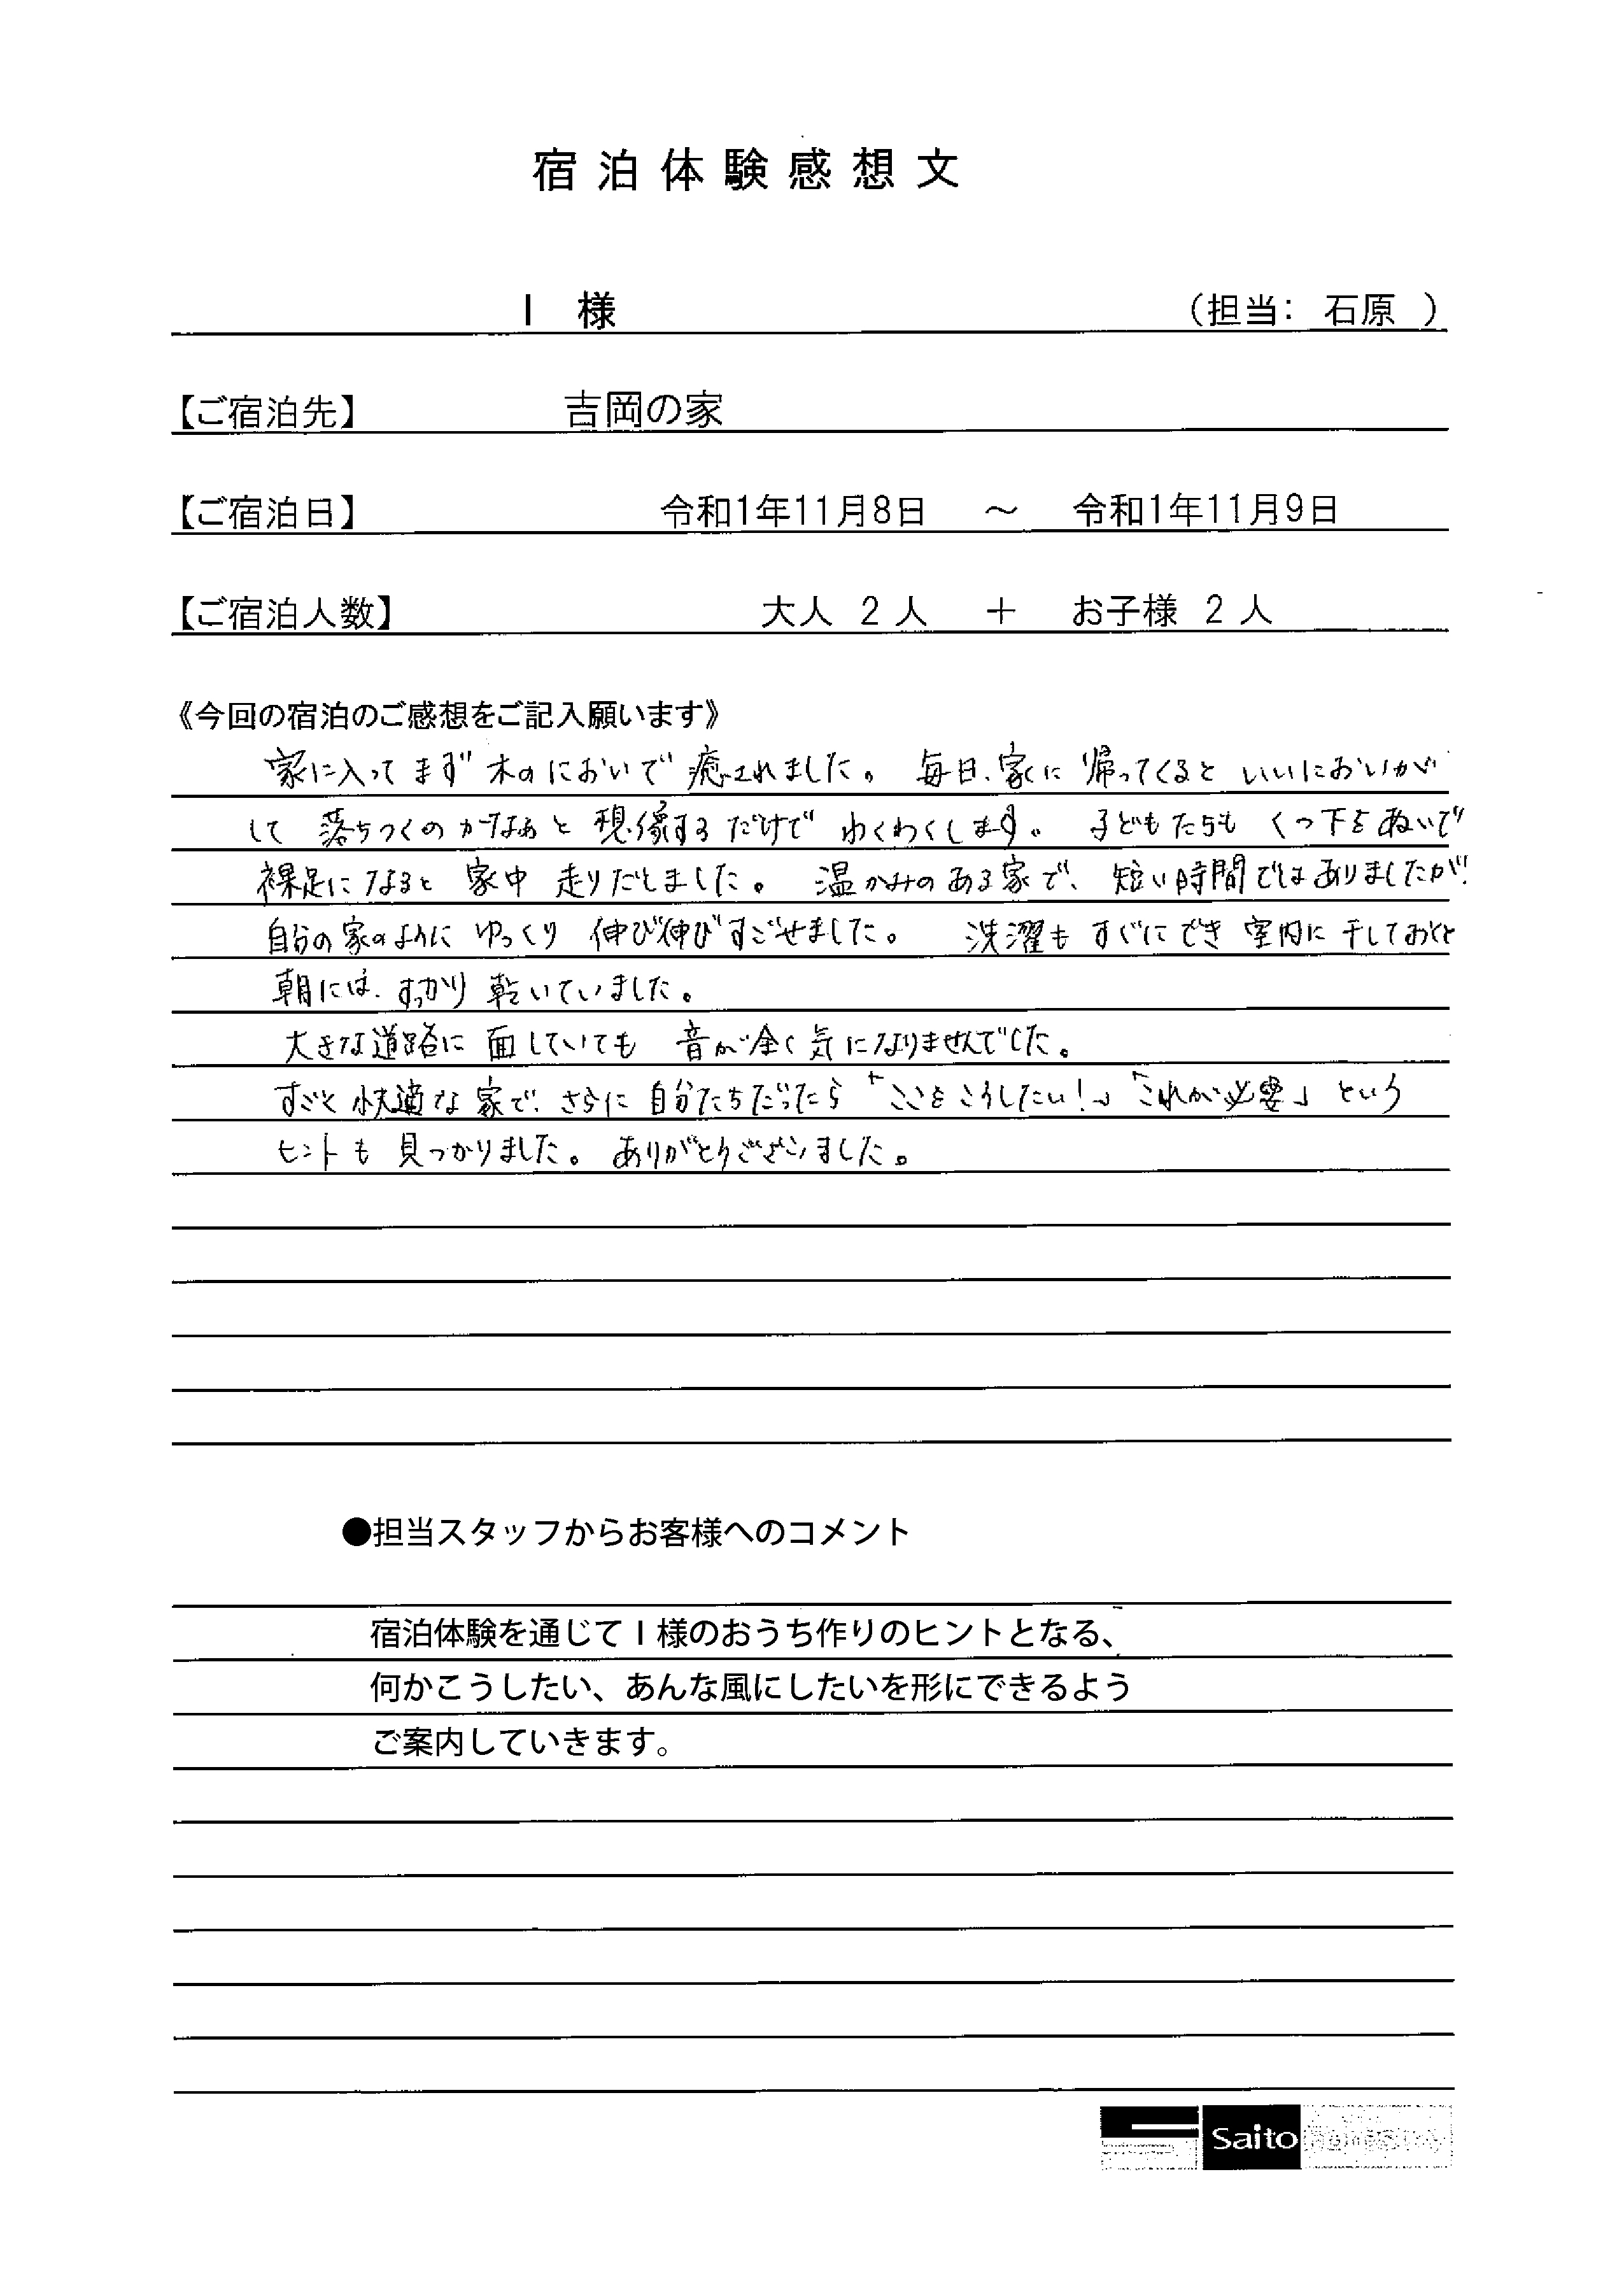 宿泊体験感想文
I 様 (担当： 石原 )
【ご宿泊先】 吉岡の家
【ご宿泊日】 令和1年11月8日 ～ 令和1年11月9日
【ご宿泊人数】 大人 2 人 ＋ お子様 2 人
《今回の宿泊のご感想をご記入願います》
家に入ってまず木のにおいで癒されました。毎日、家に帰ってくるといいにおいが
して落ちつくのかなぁと想像するだけでわくわくします。子どもたちもくつ下をぬいで
裸足になると家中走りだしました。温かみのある家で、短い時間ではありましたが、
自分の家のようにゆっくり伸び伸びすごせました。洗濯もすぐにでき室内に干しておくと
朝には、すっかり乾いていました。
大きな道路に面していても音が全く気になりませんでした。
すごく快適な家で、さらに自分たちだったら「ここをこうしたい！」「これが必要」という
ヒントも見つかりました。ありがとうございました。
●担当スタッフからお客様へのコメント
宿泊体験を通じてI様のおうち作りのヒントとなる、
何かこうしたい、あんな風にしたいを形にできるよう
ご案内していきます。
Saito